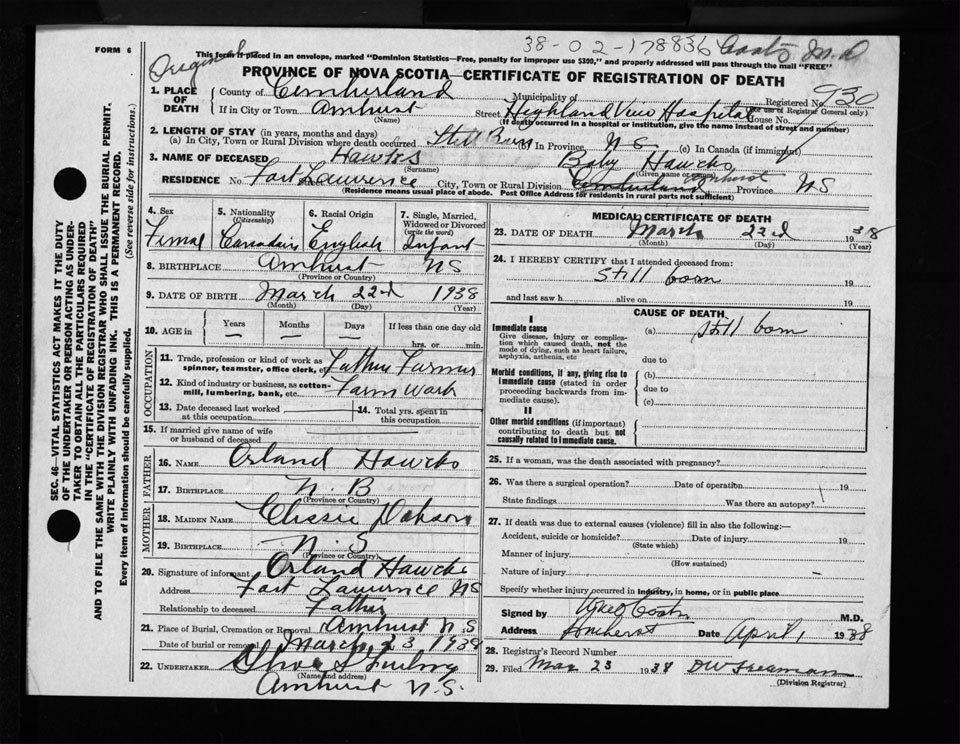 FORM 6
38-02-178836 Coats M.D
Original
This form if placed in an envelope, marked "Dominion Statistics—Free, penalty for improper use $300," and properly addressed will pass through the mail "FREE"
PROVINCE OF NOVA SCOTIA—CERTIFICATE OF REGISTRATION OF DEATH
SEC. 46—VITAL STATISTICS ACT MAKES IT THE DUTY
OF THE UNDERTAKER OR PERSON ACTING AS UNDER-
TAKER TO OBTAIN ALL THE PARTICULARS REQUIRED
IN THE "CERTIFICATE OF REGISTRATION OF DEATH"
AND TO FILE THE SAME WITH THE DIVISION REGISTRAR WHO SHALL ISSUE THE BURIAL PERMIT.
WRITE PLAINLY WITH UNFADING INK. THIS IS A PERMANENT RECORD.
Every item of information should be carefully supplied. (See reverse side for instructions.)
1. PLACE OF DEATH County of Cumberland Municipality of Registered No. 930
(For use of Registrar General only)
If in City or Town Amhurst Street Highland View Hospital House No.
(Name) (If death occurred in a hospital or institution, give the name instead of street and number)
2. LENGTH OF STAY (in years, months and days)
(a) In City, Town or Rural Division where death occurred Still Born (b) In Province N S. (c) In Canada (if immigrant)
3. NAME OF DECEASED Hawcks Baby Hawcks
(Surname) (Given name or names)
RESIDENCE No. Fort Lawrence City, Town or Rural Division Cumberland Amhurst Province N S
(Residence means usual place of abode. Post Office Address for residents in rural parts not sufficient)
4. Sex 5. Nationality (Citizenship) 6. Racial Origin 7. Single, Married, Widowed or Divorced (write the word)
Femal Canadain English Infant
8. BIRTHPLACE Amhurst N S
(Province or Country)
9. DATE OF BIRTH March 22nd 1938
(Month) (Day) (Year)
10. AGE in Years Months Days If less than one day old
hrs. or min.
OCCUPATION
11. Trade, profession or kind of work as spinner, teamster, office clerk, etc. Father Farmer
12. Kind of industry or business, as cotton-mill, lumbering, bank, etc. Farm Work
13. Date deceased last worked at this occupation 14. Total yrs. spent in this occupation
15. If married give name of wife or husband of deceased
FATHER
16. NAME Orland Hawcks
17. BIRTHPLACE N. B
(Province or Country)
MOTHER
18. MAIDEN NAME
19. BIRTHPLACE N. S
(Province or Country)
20. Signature of informant Orland Hawcks
Address Fort Lawrence NS
Relationship to deceased Father
21. Place of Burial, Cremation or Removal Amhurst N.S
Date of burial or removal March 23 1938
22. UNDERTAKER
(Name and address)
Amhurst N.S.
MEDICAL CERTIFICATE OF DEATH
23. DATE OF DEATH March 22nd 1938
(Month) (Day) (Year)
24. I HEREBY CERTIFY that I attended deceased from:
Still born 19
and last saw h alive on 19
CAUSE OF DEATH
I
Immediate cause (a) still born
Give disease, injury or complica-
tion which caused death, not the
mode of dying, such as heart failure,
asphyxia, asthenia, etc
due to
Morbid conditions, if any, giving rise to (b)
immediate cause (stated in order
proceeding backwards from im-
mediate cause).
due to
(c)
II
Other morbid conditions (if important)
contributing to death but not
causally related to immediate cause.
25. If a woman, was the death associated with pregnancy?
26. Was there a surgical operation? Date of operation 19
State findings Was there an autopsy?
27. If death was due to external causes (violence) fill in also the following:—
Accident, suicide or homicide? Date of injury 19
(State which)
Manner of injury
(How sustained)
Nature of injury
Specify whether injury occurred in industry, in home, or in public place
Signed by Coats M.D.
Address Amherst Date April 1 1938
28. Registrar's Record Number
29. Filed Mar 23 1938 DW Freeman
(Division Registrar)